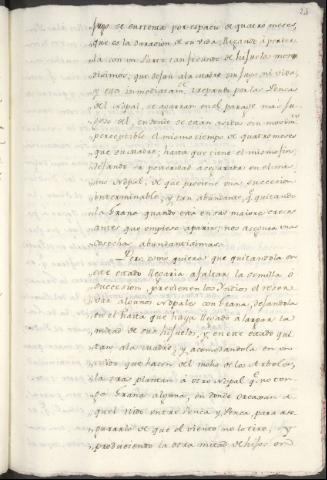 jugo se enrrema por espacio de quatro meses,
que es la duracion de su vida, llegando á parir
la con un parto tan fecundo de hijuelos
disimos, que dejan ála madre sin jugo ni vida,
y esta inmediatam.te trepando por las Pencas
del Nopal, se aparan en el parage mas ju-
goso de el, en donde se estan asidos sin movim.to
perceptible el mismo tiempo de quatro meses
que su madre; hasta que tiene el mismo fin,
dejando su posteridad acopiada en el mis-
mo Nopal, de que proviene una succecion
interminable, y tan abundante q.e quitando
la Grana quando esta en su maior creces
antes que empiese aparir, nos asegura unas
cosechas abundantisimas.
Pero como quiera que quitandola en
este estado llegaria afaltar la semilla ó
succecion, previenen los Yndios el reser-
var algunos Nopales con Grana, dejandola
en el hasta que haya llegado á largar la
mitad de sus hijuelos, y, en este estado qui
tan ála Madre, y acomodandola en unos
nidos que hacen del moho de los Arboles,
la tras plantan á otro Nopal q.e no ten-
ga Grana alguna, en donde colocan á
quel nido entre Penca, y, Penca, para ase-
gurarlo de que el viento no lo tire; y
produciendo la otra mitad de hijos en